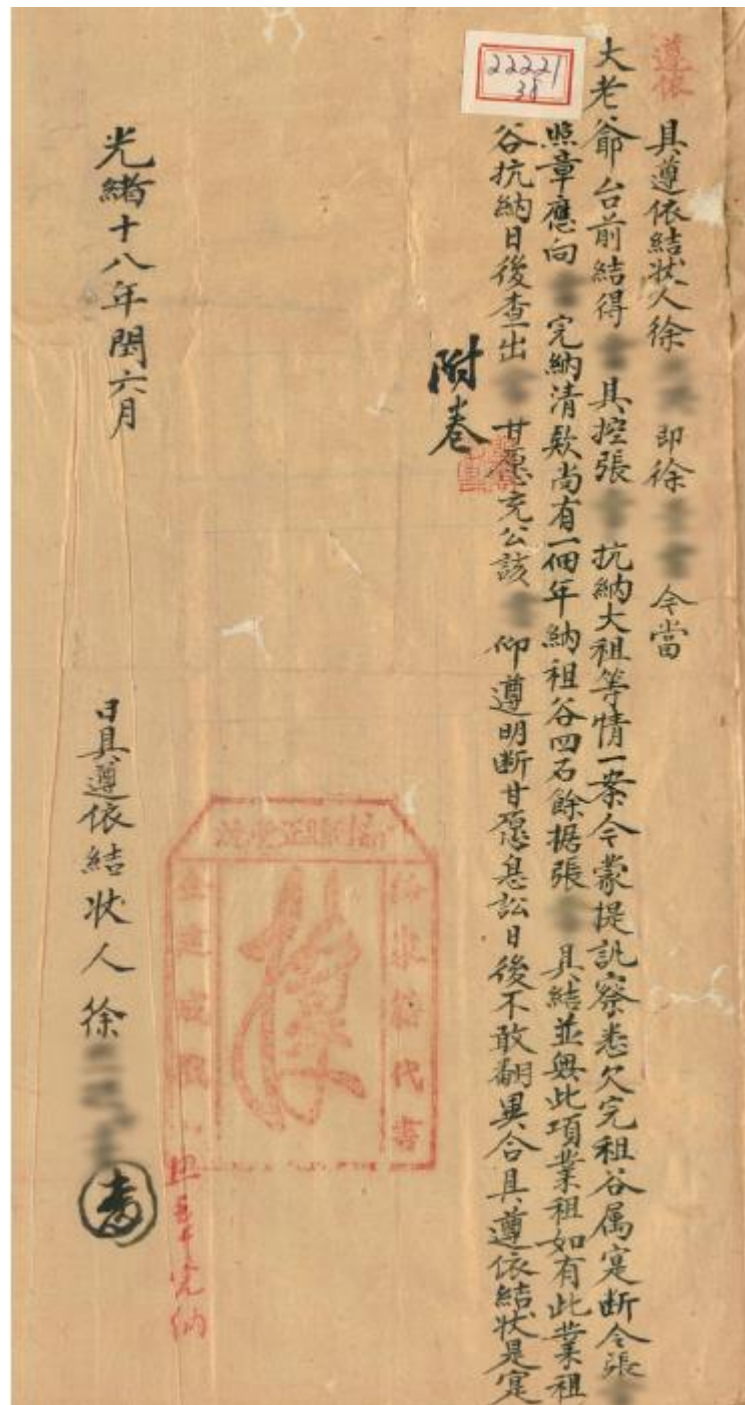 遵依
具遵依結狀人徐 即徐 今當
大老爺台前結得 具控張 抗納大祖等情一案今蒙提訊察悉欠完租谷属寔断令張
照章應向 完納清款尚有一佃年納祖谷四石餘据張 具結並無此項業租如有此業租
谷抗納日後查出 甘愿充公該 仰遵明断甘愿息訟日後不敢翻異合具遵依結狀是寔
附卷
22221
38
代書
光緒十八年閏六月
日具遵依結狀人徐